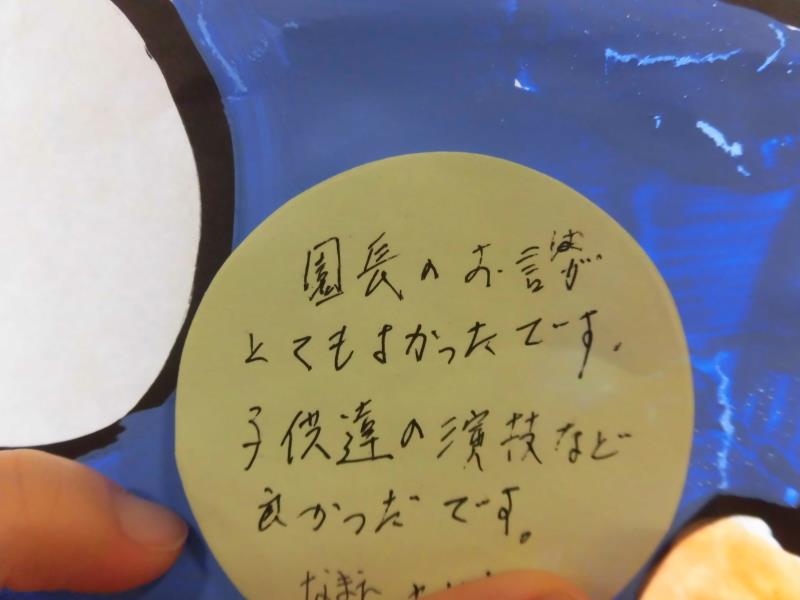 園長のお話が
とてもよかったです。
子供達の演技など
良かっだです。